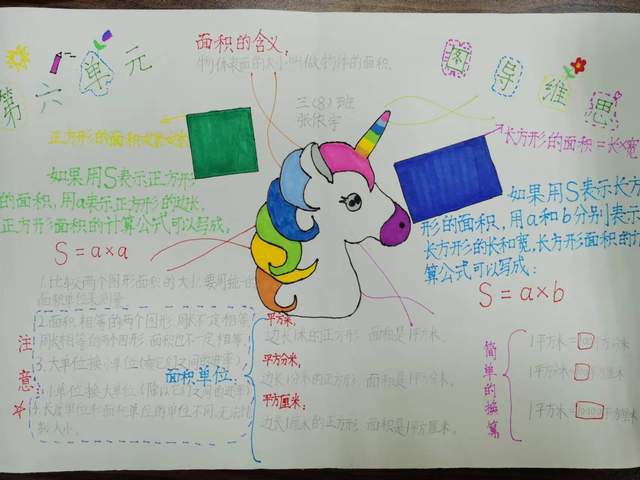 第六单元
思维导图
面积的含义:
物体表面的大小叫做物体的面积.
三(8)班
正方形的面积
长方形的面积=长×宽
如果用S表示正方形
的面积,用a表示正方形的边长,
正方形面积的计算公式可以写成:
S=a×a
如果用S表示长方
形的面积,用a和b分别表示
长方形的长和宽,长方形面积的
算公式可以写成:
S=a×b
1.比较两个图形面积的大小,要用统一的
面积单位来测量.
注意:
2.面积相等的两个图形,周长不定相等,
周长相等的两个图形,面积也不一定相等.
3.大单位换小单位(乘它们之间的进率)
小单位换大单位(除以它们之间的进率)
长度单位和面积单位的单位不同,无法比
较大小.
面积单位:
平方米,
边长1米的正方形,面积是1平方米.
平方分米,
边长1分米的正方形,面积是1平方分米.
平方厘米:
边长1厘米的正方形,面积是1平方厘米.
简单的换算
1平方米=
1平方分米=
1平方米=